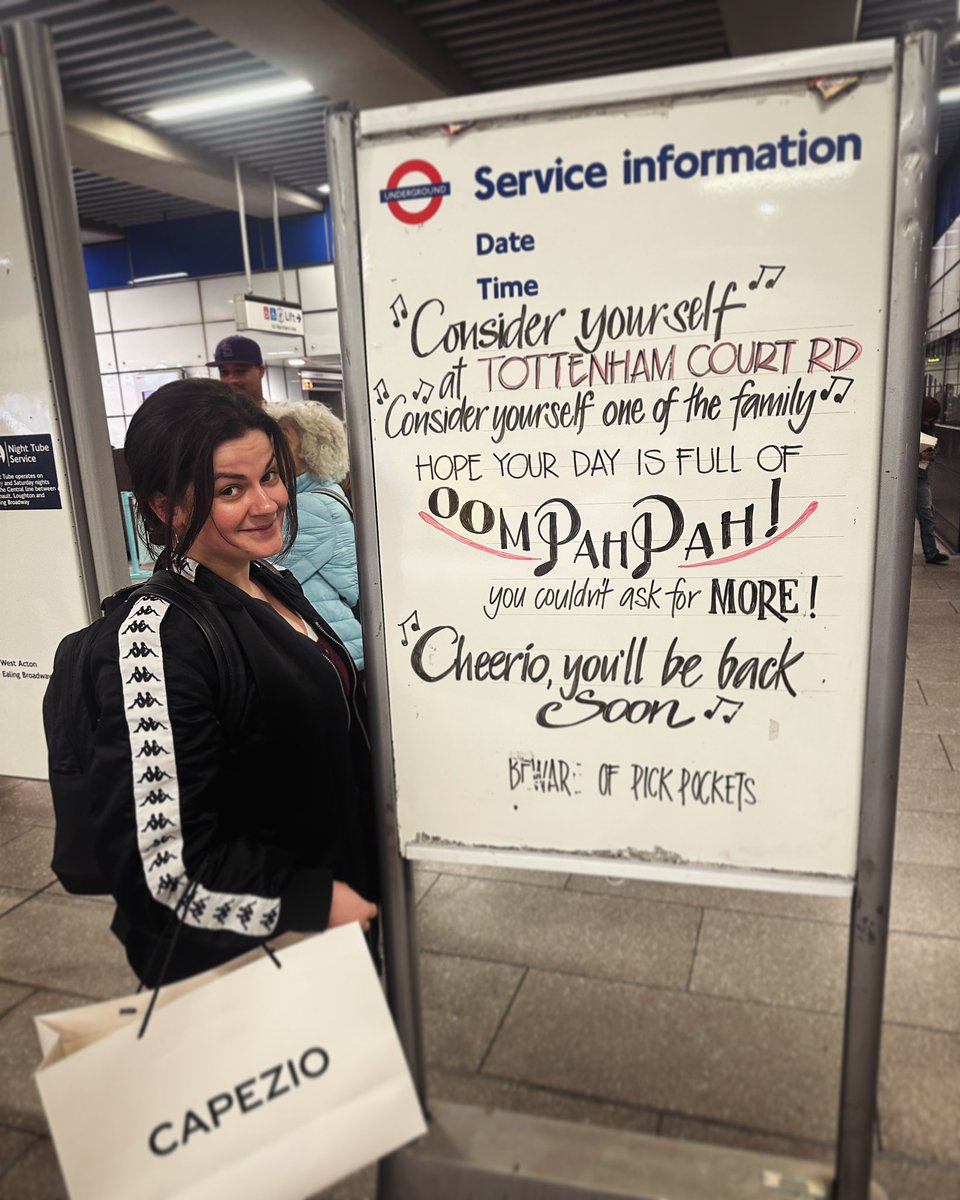 UNDERGROUND
Service information
Date
Time
Consider yourself
at TOTTENHAM COURT RD
Consider yourself one of the family
HOPE YOUR DAY IS FULL OF
OOMPAHPAH!
you couldn't ask for MORE!
Cheerio, you'll be back
Soon
BEWARE OF PICK POCKETS
Lift
Night Tube
Service
Tube operates on
and Saturday nights
the Central line between
Loughton and
Broadway
West Acton
Ealing Broadway
CAPEZIO